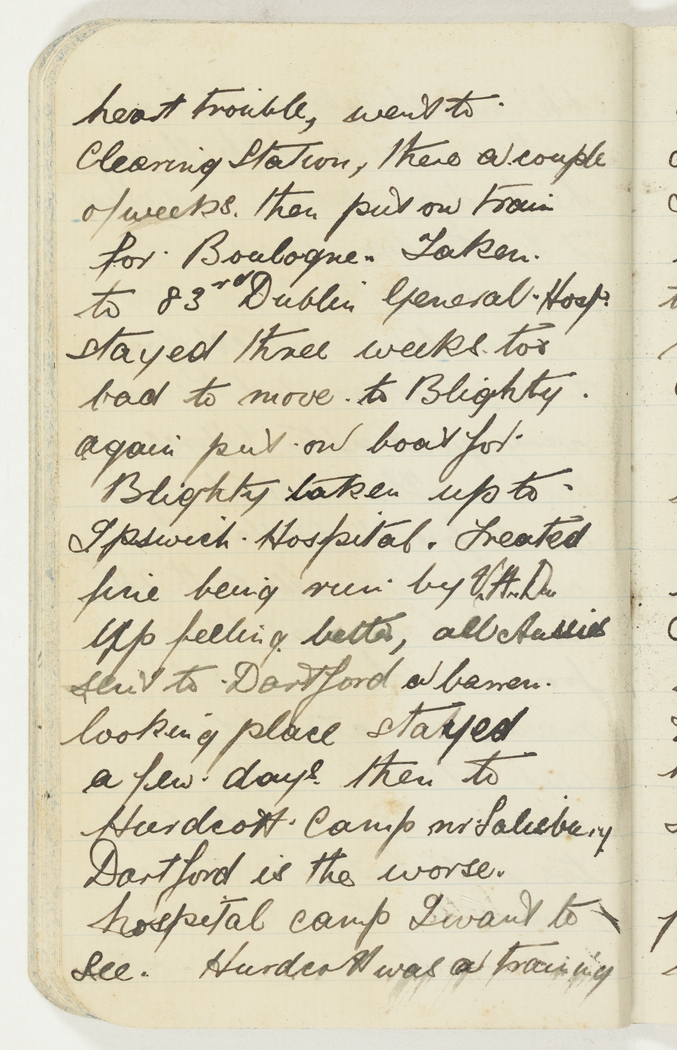 heart trouble, went to
Clearing Station, there a couple
of weeks. then put on train
for Boulogne. Taken.
to 83rd Dublin General Hosp.
stayed three weeks. too
bad to move. to Blighty.
again put on boat for
Blighty taken up to
Ipswich Hospital. Treated
fine being run by V.A.D.
Up feeling better, all Aussies
sent to Dartford a barren.
looking place stayed
a few days. then to
Hurdcott Camp nr Salisbury
Dartford is the worse.
hospital camp I want to
see. Hurdcott was a training